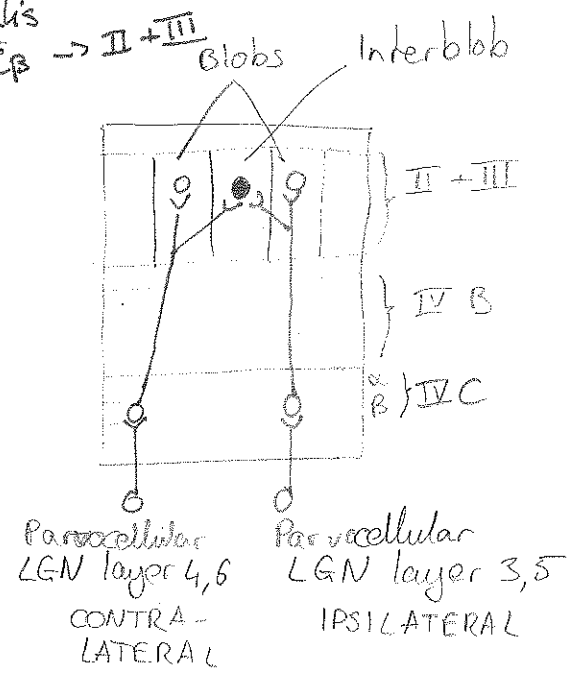 Cβ -> II + III
Blobs
Interblob
II + III
IV B
α
β } IV C
Parvocellular
LGN layer 4,6
CONTRA-
LATERAL
Parvocellular
LGN layer 3,5
IPSILATERAL